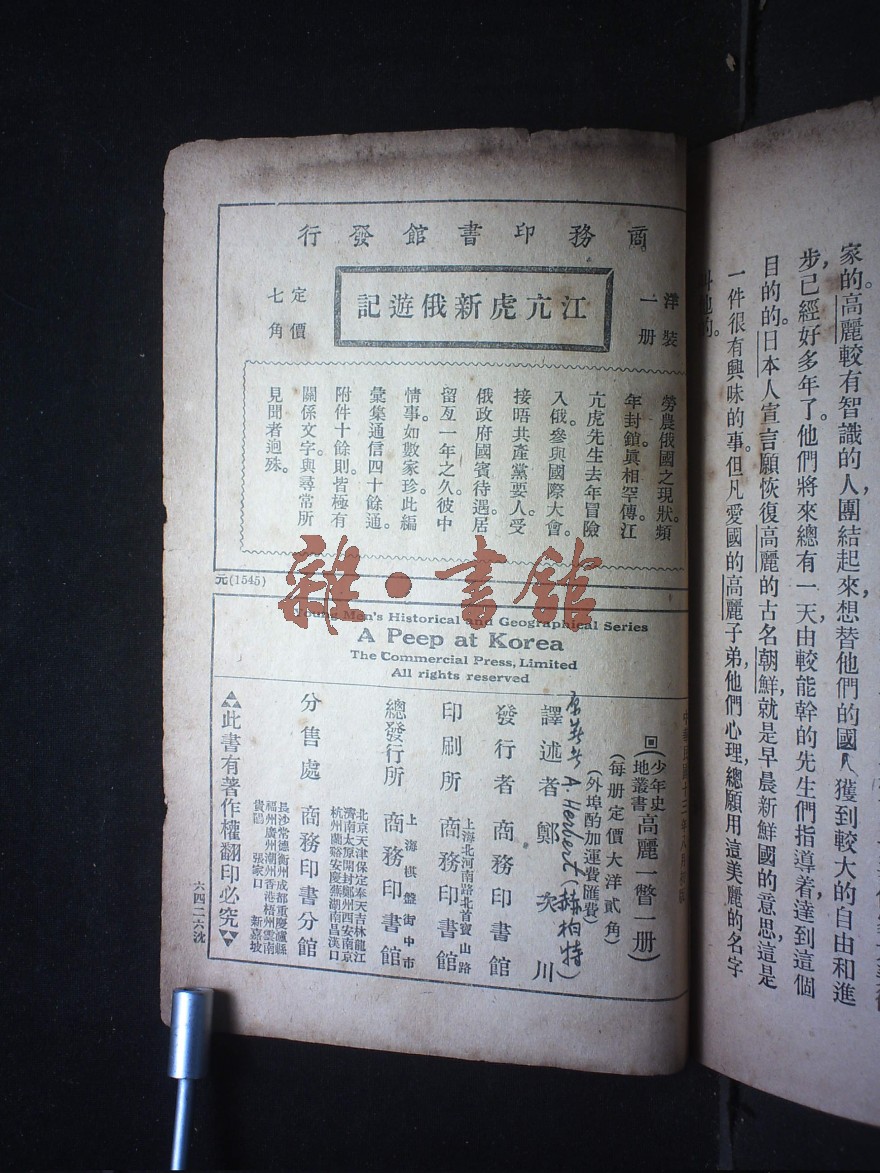 商務印書館發行
洋裝一册
江亢虎新俄遊記
定價七角
勞農俄國之現狀。頻
年封鎖。眞相罕傳。江
亢虎先生去年冒險
入俄。參與國際大會。
接晤共產黨要人。受
俄政府國賓待遇。居
留亙一年之久。彼中
情事。如數家珍。此編
彙集通信四十餘通。
附件十餘則。皆極有
關係文字。與尋常所
見聞者迥殊。
元(1545)
雜·書館
Young Men's Historical and Geographical Series
A Peep at Korea
The Commercial Press, Limited
All rights reserved
回(少年史地叢書高麗一瞥一册)
(每册定價大洋貳角)
(外埠酌加運費匯費)
A. Herbert(赫柏特)
譯述者 鄭次川
發行者 商務印書館
上海北河南路北首寶山路
印刷所 商務印書館
上海棋盤街中市
總發行所 商務印書館
北京天津保定奉天吉林龍江
濟南太原開封鄭州西安南京
杭州蘭谿安慶蕪湖南昌漢口
分售處 商務印書分館
長沙常德衡州成都重慶瀘縣
福州廣州潮州香港梧州雲南
貴陽 張家口 新嘉坡
此書有著作權翻印必究
六四二六沈
家的高麗較有智識的人團結起來,想替他們的國人獲到較大的自由和進
步,已經好多年了。他們將來總有一天,由較能幹的先生們指導着,達到這個
目的的。日本人宣言願恢復高麗的古名朝鮮,就是早晨新鮮國的意思,這是
一件很有興味的事。但凡愛國的高麗子弟,他們心理,總願用這美麗的名字